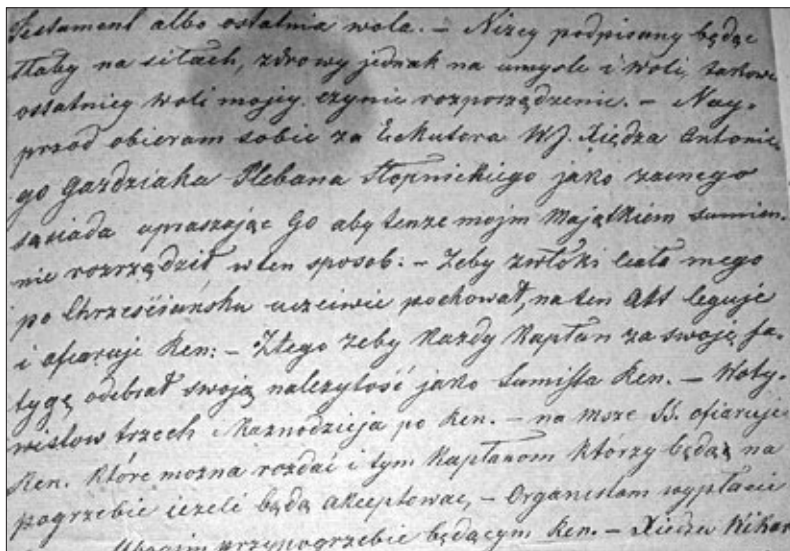 Testament albo ostatnia wola. – Niżey podpisany będąc
słaby na siłach, zdrowy jednak na umyśle i woli, takowe
ostatniey woli mojey czynie rozporządzenie. – Nay-
przod obieram sobie za Exekutora WJ. Xiędza Antonie-
go Gaździaka Plebana Słopnickiego jako zacnego
sąsiada upraszając Go aby tenże mojm Majątkiem sumien-
nie rozrządził w ten sposob: – Żeby zwłoki ciała mego
po Chrześciańsku uczciwie pochował, na ten Akt leguje
i ofiaruje Ren: – Ztego żeby Każdy Kapłan za swoję fa-
tygę odebrał swoją należytość jako Sumista Ren. – Woty-
wistow trzech Kaznodzieja po Ren. – na msze SS. ofiaruje
Ren. Które można rozdać i tym Kapłanom Którzy będą na
pogrzebie ieżeli będą akceptować, – Organistom wypłacić
Ubogim przy pogrzebie będącym Ren. – Xiędzu Wikar